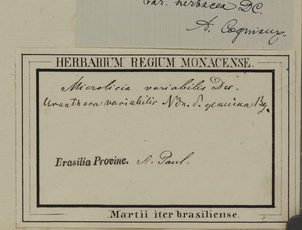 var. herbacea DC.
A. Cogniaux.
HERBARIUM REGIUM MONACENSE.
Microlicia variabilis
variabilis
Brasilia Provinc. S. Paul.
Martii iter brasiliense.